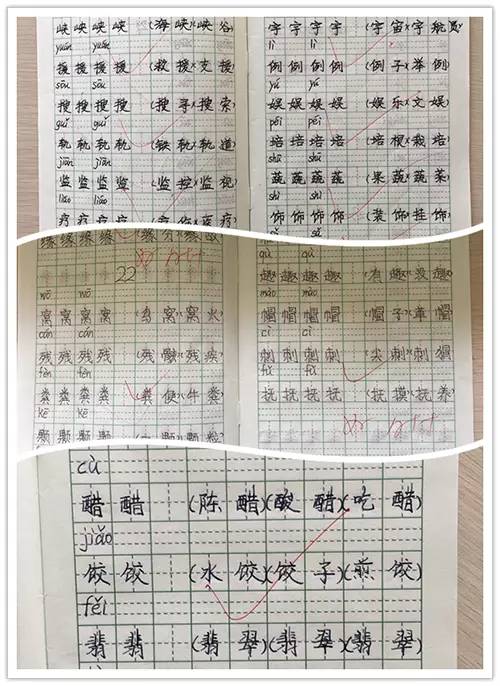 峡 峡 峡 峡 (海 峡)(峡 谷)
yuán yuán
援 援 援 援 (救 援)(支 援)
sōu sōu
搜 搜 搜 搜 (搜 寻)(搜 索)
guǐ guǐ
轨 轨 轨 轨 (铁 轨)(轨 道)
jiān jiān
监 监 监 监 (监 控)(监 视)
liáo liáo
疗 疗 疗 疗
宇 宇 宇 宇 (宇 宙)(宇 航员)
lì lì
例 例 例 例 (例 子)(举 例)
yú yú
娱 娱 娱 娱 (娱 乐)(文 娱)
péi péi
培 培 培 培 (培 根)(栽 培)
shū shū
蔬 蔬 蔬 蔬 (果 蔬)(蔬 菜)
shì shì
饰 饰 饰 饰 (装 饰)(挂 饰)
缘 缘 缘 缘
22
wō wō
窝 窝 窝 窝 (鸟 窝)(窝 火)
cán cán
残 残 残 残
fèn fèn
粪 粪 粪 粪 (粪 便)(牛 粪)
kē kē
颗 颗 颗 颗
qù qù
趣 趣 趣 趣 (有 趣)(没 趣)
mào mào
帽 帽 帽 帽 (帽 子)(草 帽)
cì cì
刺 刺 刺 刺 (尖 刺)(刺 猬)
fǔ fǔ
抚 抚 抚 抚 (抚 摸)(抚 养)
cù
醋 醋 (陈 醋)(酸 醋)(吃 醋)
jiǎo
饺 饺 (水 饺)(饺 子)(煎 饺)
fěi
翡 翡 (翡 翠)(翡 翠)(翡 翠)